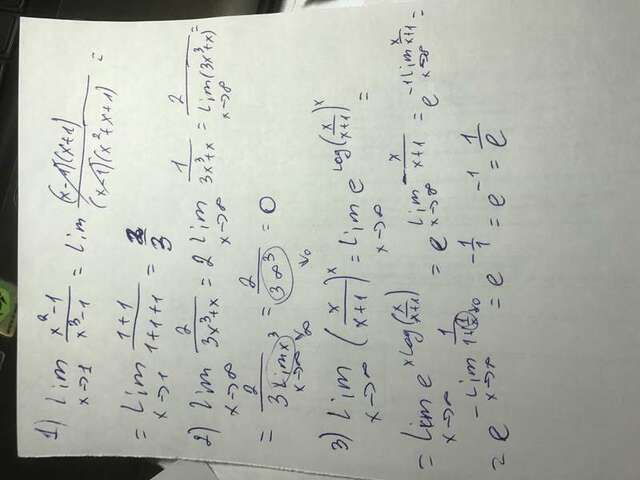 1) lim x→1 (x²-1)/(x³-1) = lim ((x-1)(x+1))/((x-1)(x²+x+1)) =
= lim x→1 (1+1)/(1+1+1) = 2/3
2) lim x→∞ 2/(3x³+x) = 2 lim x→∞ 1/(3x³+x) = 2/(lim x→∞ (3x³+x)) =
= 2/(3 lim x→∞ x³) →∞ = 2/(3∞³) →0 = 0
3) lim x→∞ (x/(x+1))^x = lim x→∞ e^(log(x/(x+1))^x) =
= lim x→∞ e^(x log(x/(x+1))) = e^(lim x→∞ - x/(x+1)) = e^(-1 lim x→∞ x/(x+1)) =
= e^(-lim x→∞ 1/(1+(1/x)→0)) = e^(-1/1) = e^(-1) = 1/e